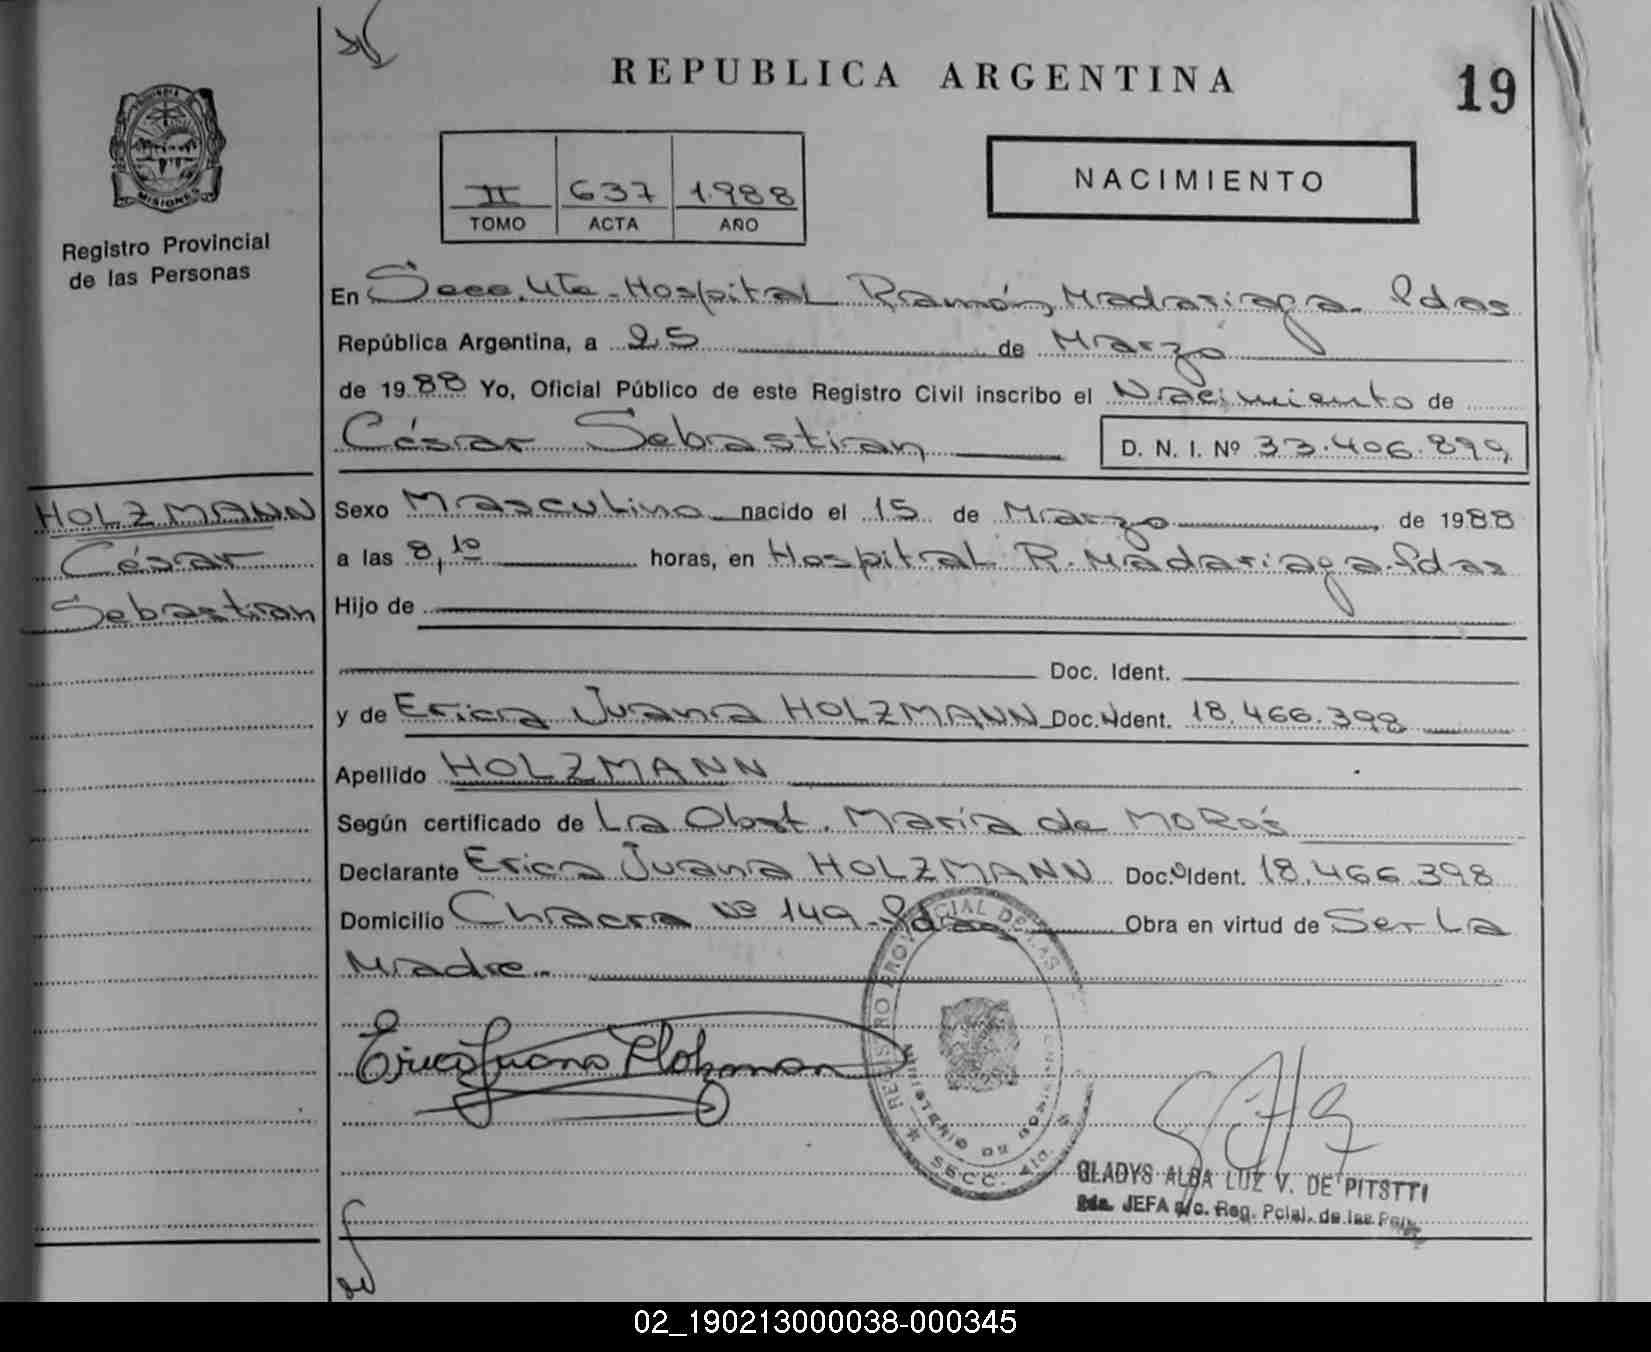 REPUBLICA ARGENTINA
19
PROVINCIA DE
MISIONES
Registro Provincial
de las Personas
II 637 1.988
TOMO ACTA AÑO
NACIMIENTO
En Secc. 4ta - Hospital Ramón Madariaga - Pdas
República Argentina, a 25 de Marzo
de 1988 Yo, Oficial Público de este Registro Civil inscribo el Nacimiento de
César Sebastian D. N. I. Nº 33.406.899
HOLZMANN
César
Sebastian
Sexo Masculino nacido el 15 de Marzo, de 1988
a las 8,10 horas, en Hospital R. Madariaga - Pdas
Hijo de
Doc. Ident.
y de Erica Juana HOLZMANN Doc. Ident. 18.466.398
Apellido HOLZMANN
Según certificado de La Obst. María de
Declarante Erica Juana HOLZMANN Doc. Ident. 18.466.398
Domicilio Chacra Nº 149 - Pdas Obra en virtud de Ser La
Madre.
Erica Juana Holzman
REGISTRO PROVINCIAL DE LAS
MINISTERIO DE GOBIERNO
SECC. 4ta.
GLADYS ALBA LUZ V. DE PITSTTI
JEFA a/c. Reg. Pcial. de las Pers.
02_190213000038-000345